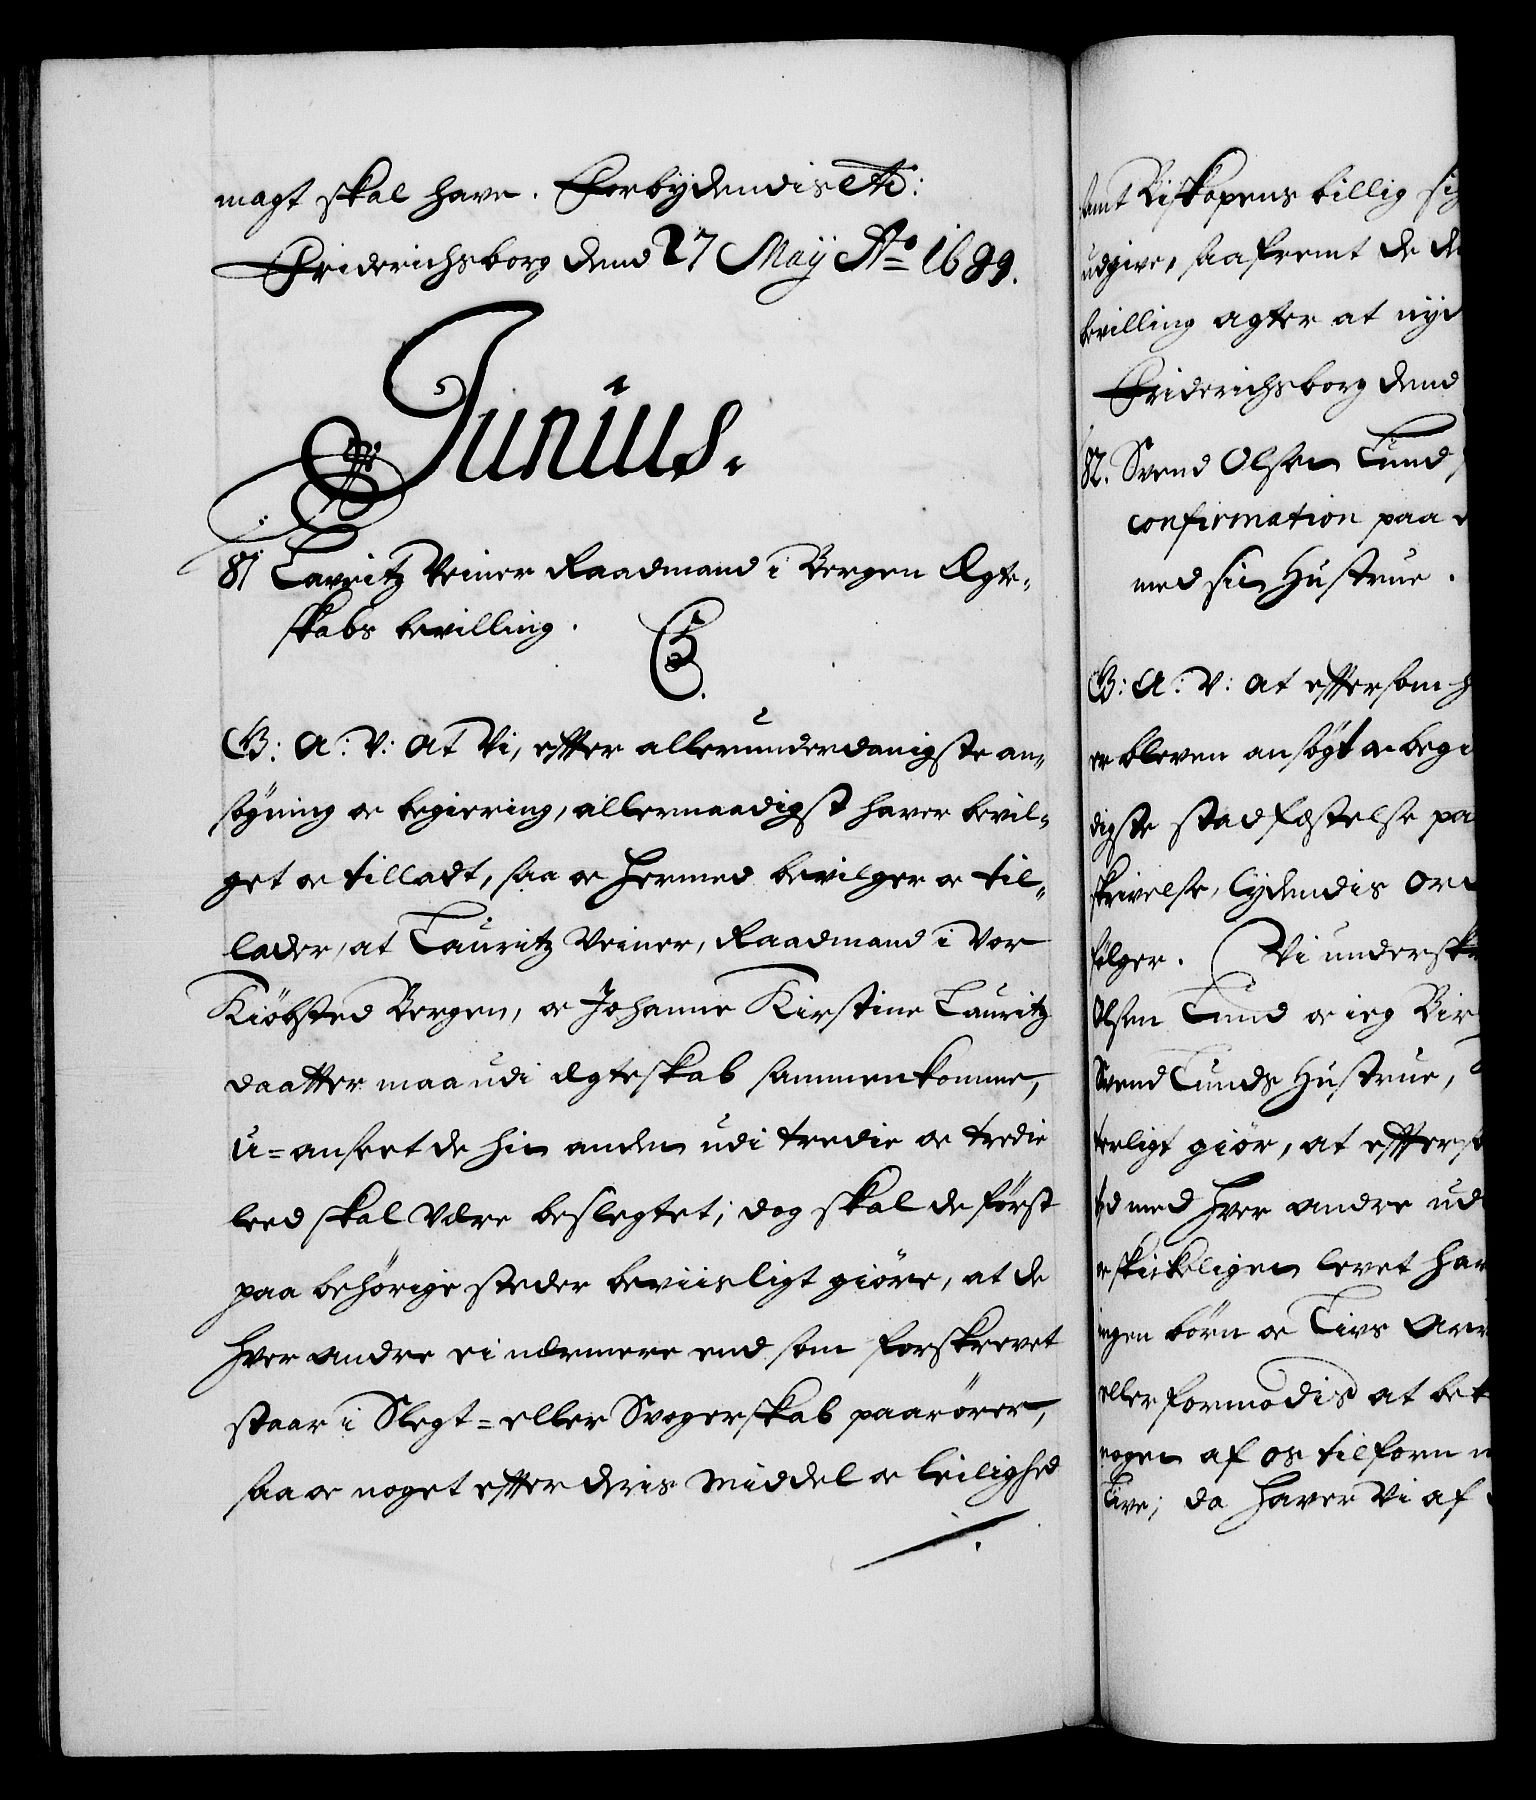 magt skal have. Forbydendis etc:
Friderichsborg dend 27 Maÿ A⁰ 1689.
Junius.
81 Lauritz Veiner Raadmand i Bergen Ægte-
skabs bevilling.
G: A: V: at Vi, effter allerunderdanigste an-
søgning oc begiering, allernaadigst haver bevil-
get oc tilladt, saa oc hermed bevilger oc til-
lader, at Lauritz Veiner, Raadmand i Vor
Kiöbsted Bergen, oc Johanne Kirstine Lauritz
daatter maa udi Ægteskab sammenkomme,
u-anseet de hin anden udi tredie oc tredie
leed skal være beslegtet; dog skal de först
paa behörige steder beviisligt giöre, at de
hver andre ei nærmere end som forskrevet
staar i Slegt- eller Svogerskab paarörer,
saa oc noget effter deris middel oc leilighed
samt Biskopens billig
udgive, saafremt de
bevilling agter at
Friderichsborg dend
82. Svend Olsen Lund
confirmation paa
med sin Hustrue.
G: A: V: at effersom
er bleven ansögt oc
digste stadfæstelse
skrivelse, lydendis
fölger. Vi
Olsen Lund oc ieg
Svend Lunds Hustrue,
terligt giör, at
med hver andre
oc skickeligen levet
ingen börn oc Livs
eller formodis at
nogen af os tilforn
Live; da haver Vi af